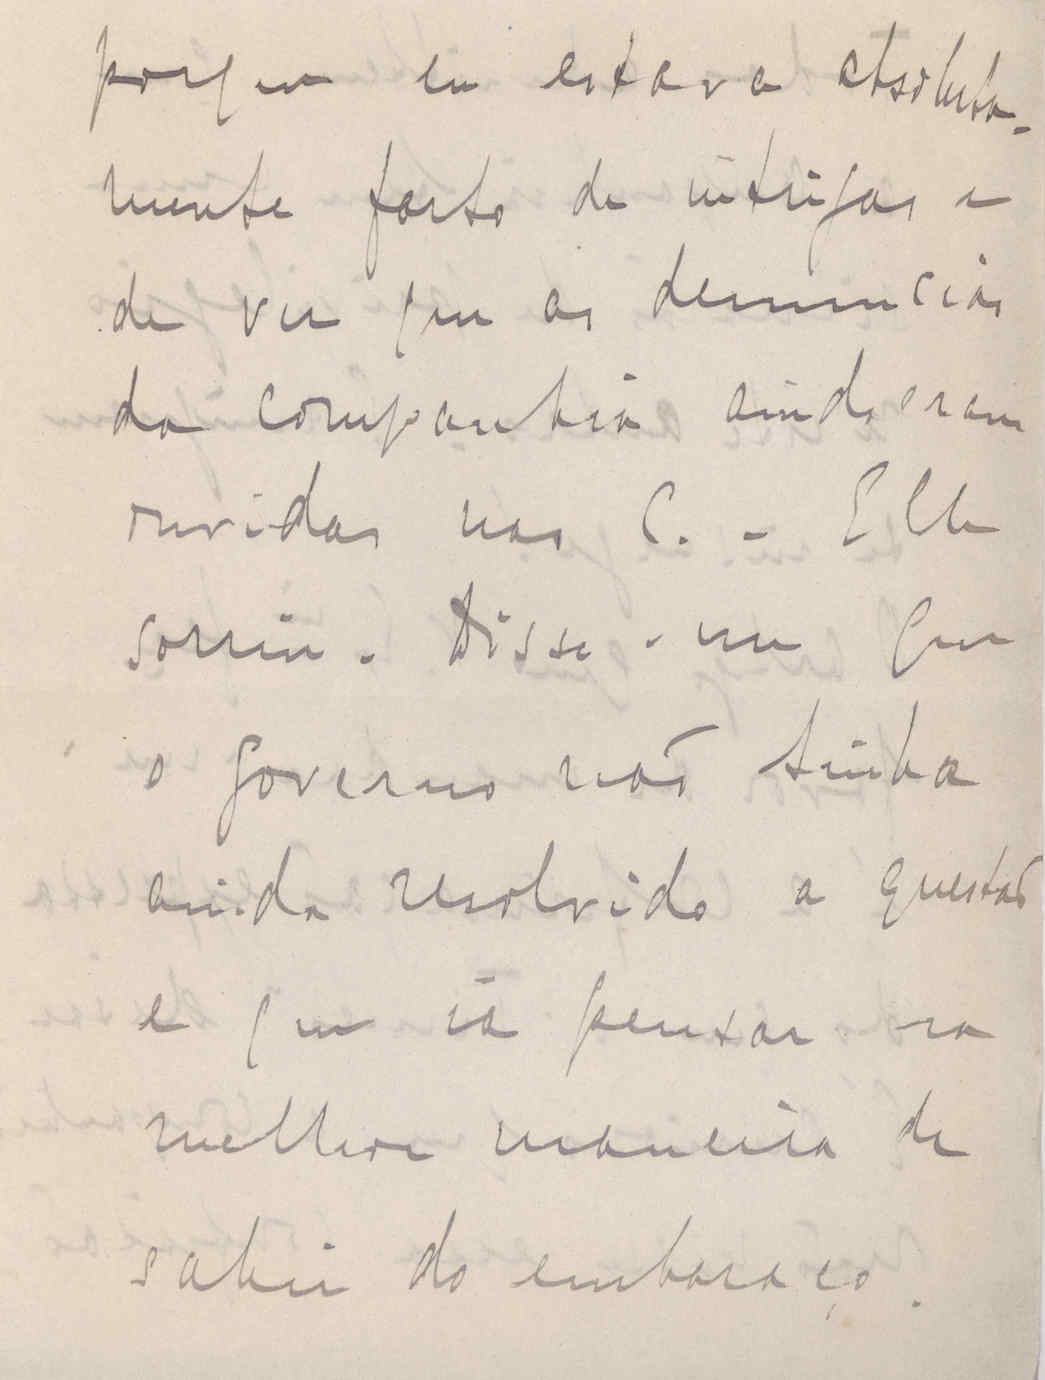 porque eu estava absoluta-
mente farto de intrigas e
de ver que as denuncias
da companhia ainda eram
ouvidas nas C. - Elle
sorriu. Disse-me que
o governo não tinha
ainda resolvido a questão
e que ia pensar na
melhor maneira de
sahir do embaraço.